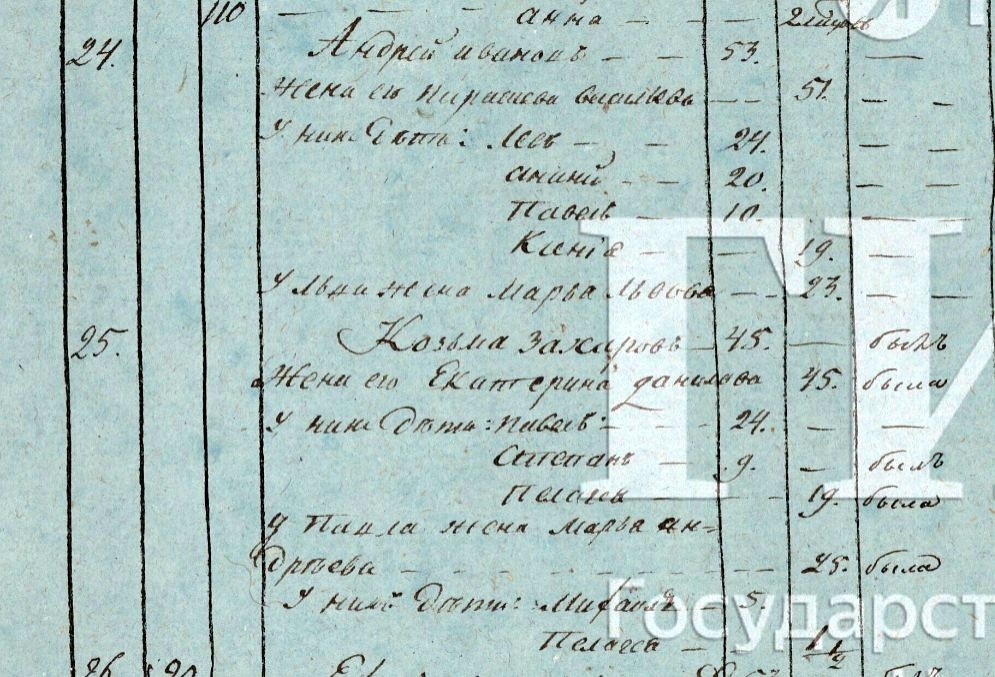 110 — — — анна — — — 2
24. Андрей ивановъ — — 53. —
Жена его Парасковья васильева — — 51. — —
У них дѣти: Левъ — — 24. — —
ананий — — 20. — —
Павелъ — 10. — —
Ксенія — — 19. —
У Льва жена Марья Львова — — 23. — —
25. Козьма Захаровъ — 45. — былъ
Жена его Екатерина данилова 45. была
У них дѣти: Павелъ: — 24. — —
Степанъ — 9. — былъ
Пелагея — — 19. была
у Павла жена Марья ан=
дрѣева — — — — — — 25. была
У них дѣти: Михаилъ — 5.
Пелагея — — 1 1/2
26. 20
ГИ
Государст